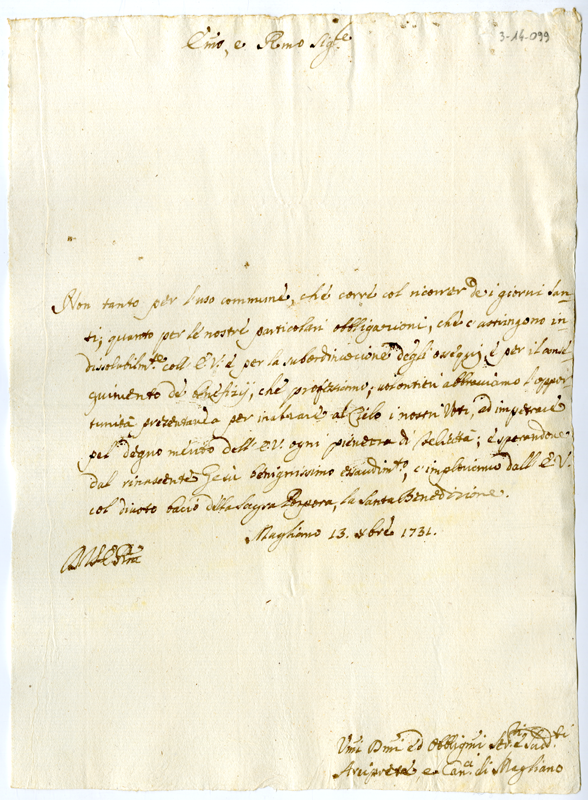 3-14-099
Emo, e Rmo Sig.re
Non tanto per l'uso commune, che corre col ricorrer de i giorni San-
ti; quanto per le nostre particolari obbligazioni, che c'astringono in-
dissolubilm.te coll'E.V. e per la subordinazione degli ossequij, e per il conse-
guimento de benefizij, che professiamo; volontieri abbracciamo l'oppor-
tunità presentanea per inalzare al Cielo i nostri Voti, ad impetrare
pel degno merito dell'E.V. ogni pienezza di felicità; e sperandone
dal rinascente Gesù benignissimo esaudim.to, c'imploriamo dall'E.V.
col divoto bacio della Sagra Porpora, la Santa Benedizione.
Magliano 13. Xbre 1731.
Umi Dmi ed Obbligmi Ser.i e Sud.ti
Arciprete e Can.ci di Magliano